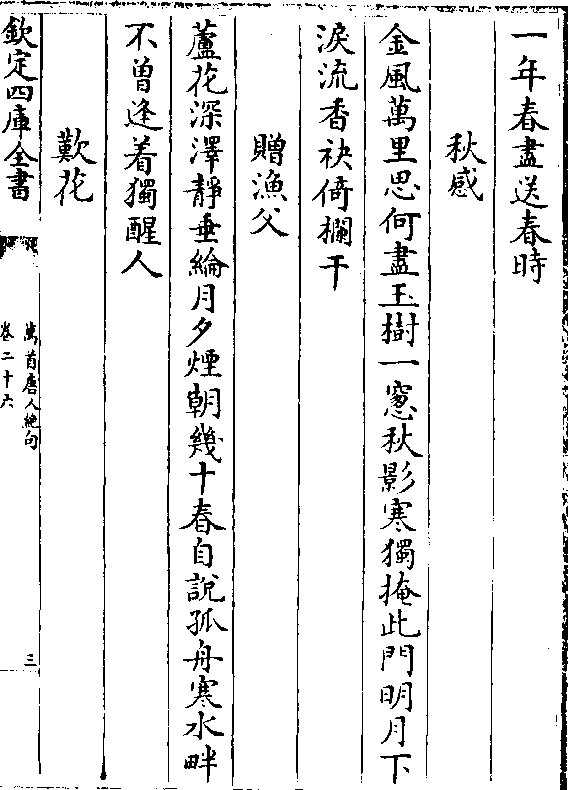 一年春盡送春時
秋感
金風萬里思何盡玉樹一窓秋影寒獨掩此門明月下
淚流香袂倚欄干
贈漁父
蘆花深澤靜垂綸月夕煙朝幾十春自說孤舟寒水畔
不曾逢着獨醒人
歎花
欽定四庫全書
萬首唐人絶句
卷二十六
三